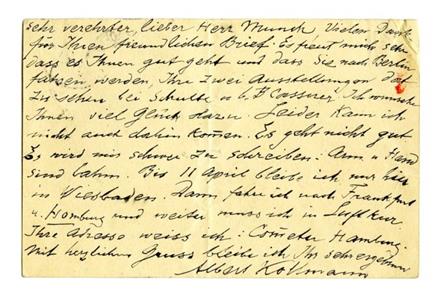 Sehr verehrter, lieber Herr Munch, Vielen Dank
für Ihren freundlichen Brief. Es freut mich sehr
dass es Ihnen gut geht und dass Sie nach Berlin
fahren werden Ihre zwei Ausstellungen dort
zu sehen bei Schulte u. b. P Cassirer. Ich wünsche
Ihnen viel Glück dazu. Leider kann ich
nicht auch dahin kommen. Es geht nicht gut
Es wird mir schwer zu schreiben: Arm u Hand
sind lahm. Bis 11 April bleibe ich nur hier
in Wiesbaden. Dann fahre ich nach Frankfurt
u. Homburg und weiter muss ich in Luftkur.
Ihre Adresse weiss ich: Cometer Hamburg.
Mit herzlichem Gruss bleibe ich Ihr sehr ergebener
Albert Kollmann